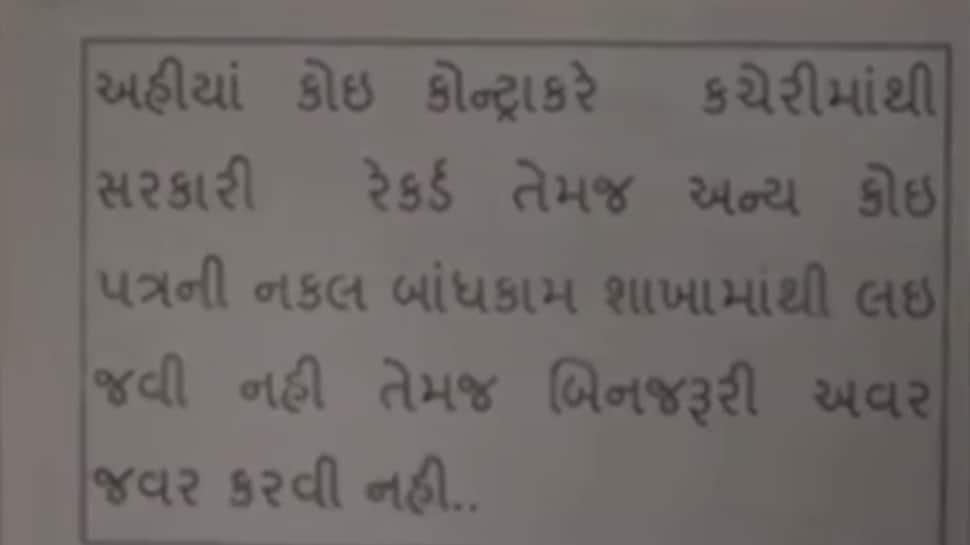 અહીયાં કોઇ કોન્ટ્રાકરે કચેરીમાંથી
સરકારી રેકર્ડ તેમજ અન્ય કોઇ
પત્રની નકલ બાંધકામ શાખામાંથી લઇ
જવી નહી તેમજ બિનજરૂરી અવર
જવર કરવી નહી..